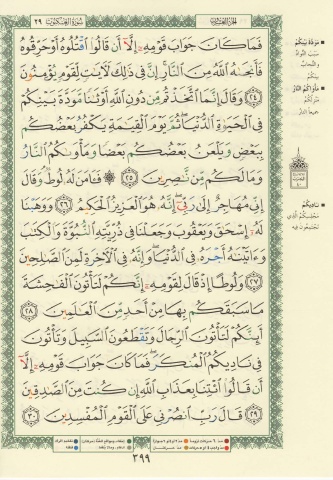 سُورَةُ العَنكَبُوت ٢٩
الجُزءُ العِشرُون
فَمَا كَانَ جَوَابَ قَوْمِهِۦٓ إِلَّآ أَن قَالُوا۟ ٱقْتُلُوهُ أَوْ حَرِّقُوهُ
فَأَنجَىٰهُ ٱللَّهُ مِنَ ٱلنَّارِ ۚ إِنَّ فِى ذَٰلِكَ لَـَٔايَـٰتٍ لِّقَوْمٍ يُؤْمِنُونَ
﴿٢٤﴾ وَقَالَ إِنَّمَا ٱتَّخَذْتُم مِّن دُونِ ٱللَّهِ أَوْثَـٰنًا مَّوَدَّةَ بَيْنِكُمْ
فِى ٱلْحَيَوٰةِ ٱلدُّنْيَا ۖ ثُمَّ يَوْمَ ٱلْقِيَـٰمَةِ يَكْفُرُ بَعْضُكُم
بِبَعْضٍ وَيَلْعَنُ بَعْضُكُم بَعْضًا وَمَأْوَىٰكُمُ ٱلنَّارُ
وَمَا لَكُم مِّن نَّـٰصِرِينَ ﴿٢٥﴾ ۞ فَـَٔامَنَ لَهُۥ لُوطٌ ۘ وَقَالَ
إِنِّى مُهَاجِرٌ إِلَىٰ رَبِّىٓ ۖ إِنَّهُۥ هُوَ ٱلْعَزِيزُ ٱلْحَكِيمُ ﴿٢٦﴾ وَوَهَبْنَا
لَهُۥٓ إِسْحَـٰقَ وَيَعْقُوبَ وَجَعَلْنَا فِى ذُرِّيَّتِهِ ٱلنُّبُوَّةَ وَٱلْكِتَـٰبَ
وَءَاتَيْنَـٰهُ أَجْرَهُۥ فِى ٱلدُّنْيَا ۖ وَإِنَّهُۥ فِى ٱلْـَٔاخِرَةِ لَمِنَ ٱلصَّـٰلِحِينَ
﴿٢٧﴾ وَلُوطًا إِذْ قَالَ لِقَوْمِهِۦٓ إِنَّكُمْ لَتَأْتُونَ ٱلْفَـٰحِشَةَ
مَا سَبَقَكُم بِهَا مِنْ أَحَدٍ مِّنَ ٱلْعَـٰلَمِينَ ﴿٢٨﴾
أَئِنَّكُمْ لَتَأْتُونَ ٱلرِّجَالَ وَتَقْطَعُونَ ٱلسَّبِيلَ وَتَأْتُونَ
فِى نَادِيكُمُ ٱلْمُنكَرَ ۖ فَمَا كَانَ جَوَابَ قَوْمِهِۦٓ إِلَّآ
أَن قَالُوا۟ ٱئْتِنَا بِعَذَابِ ٱللَّهِ إِن كُنتَ مِنَ ٱلصَّـٰدِقِينَ
﴿٢٩﴾ قَالَ رَبِّ ٱنصُرْنِى عَلَى ٱلْقَوْمِ ٱلْمُفْسِدِينَ ﴿٣٠﴾
٣٩٩
مَوَدَّةَ بَيْنِكُمْ
مَأْوَاكُمُ النَّارُ
نَادِيكُمُ